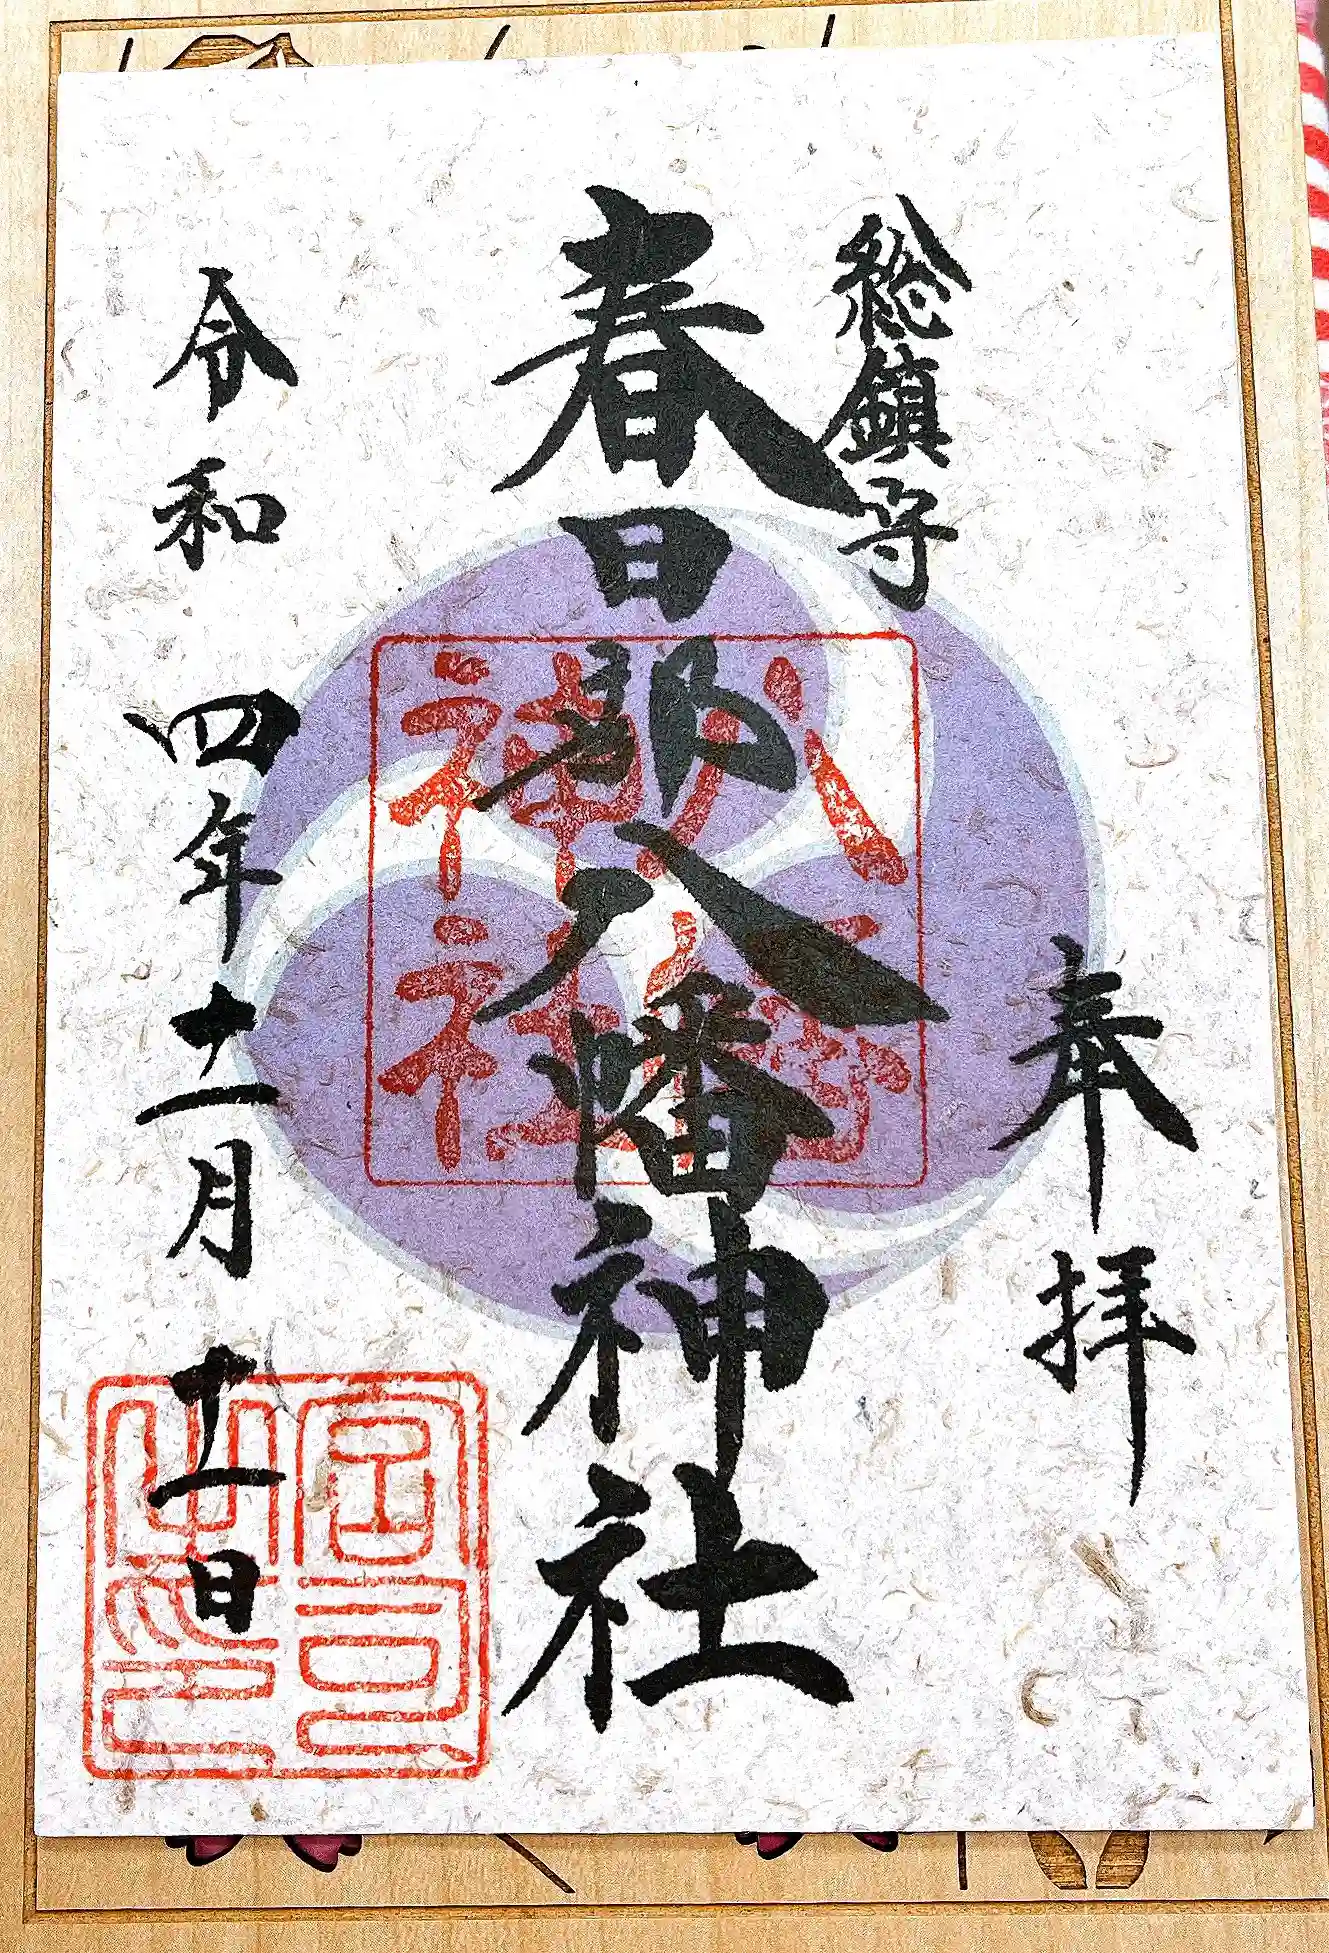 奉拝
総鎮守
春日部八幡神社
八幡神社
宮司之印
令和四年十一月十一日